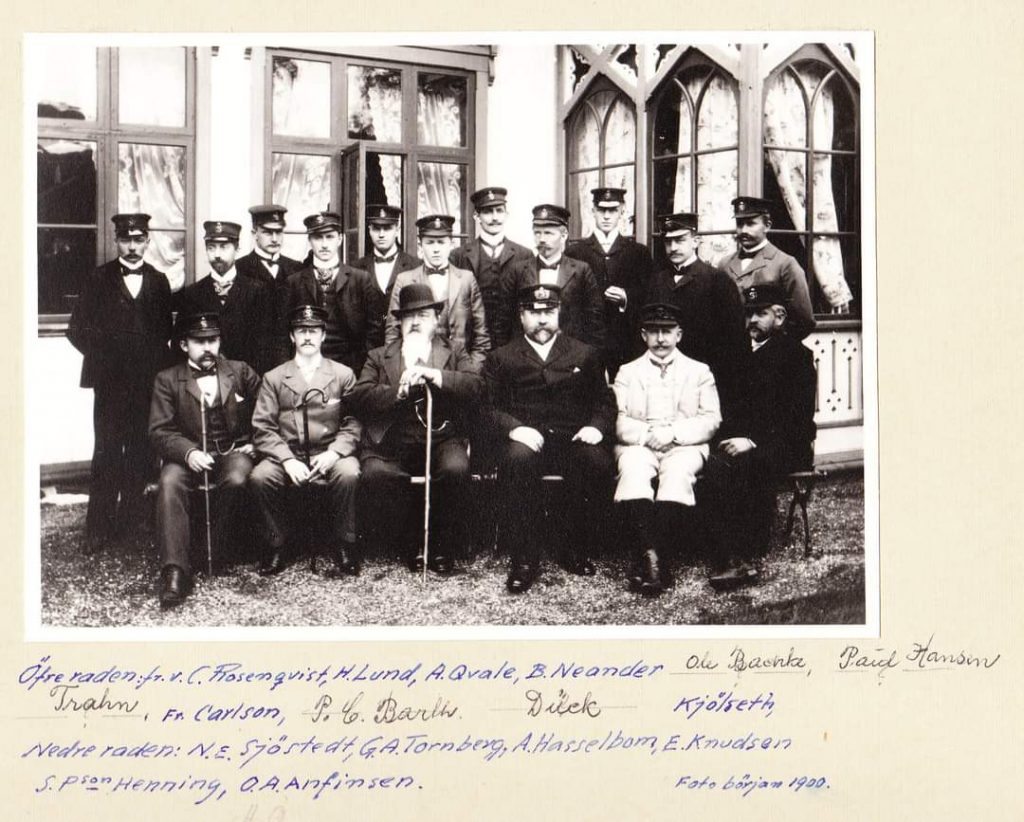 Öfre raden: fr. v. C. Rosenqvist, H. Lund, A. Qvale, B. Neander Ole Backe, Paul Hansen
Trahn, Fr. Carlson, P. C. Barth. Dück Kjölseth,
Nedre raden: N. E. Sjöstedt, G. A. Tornberg, A. Hasselbom, E. Knudsen
S. Pson Henning, O. A. Anfinsen. Foto början 1900.